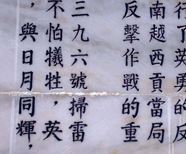 了行英勇的反
南越西貢當局
反擊作戰的重
三九六號掃雷
不怕犧牲，英
，與日月同輝，